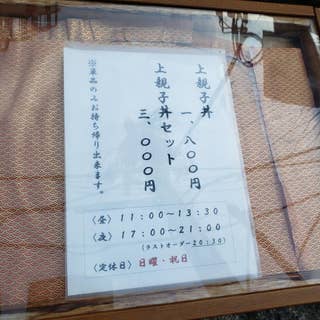 上親子丼
一、八〇〇円
上親子丼セット
三、〇〇〇円
※単品のみお持ち帰り出来ます。
〈昼〉11:00～13:30
〈夜〉17:00～21:00
(ラストオーダー20:30)
〈定休日〉日曜・祝日